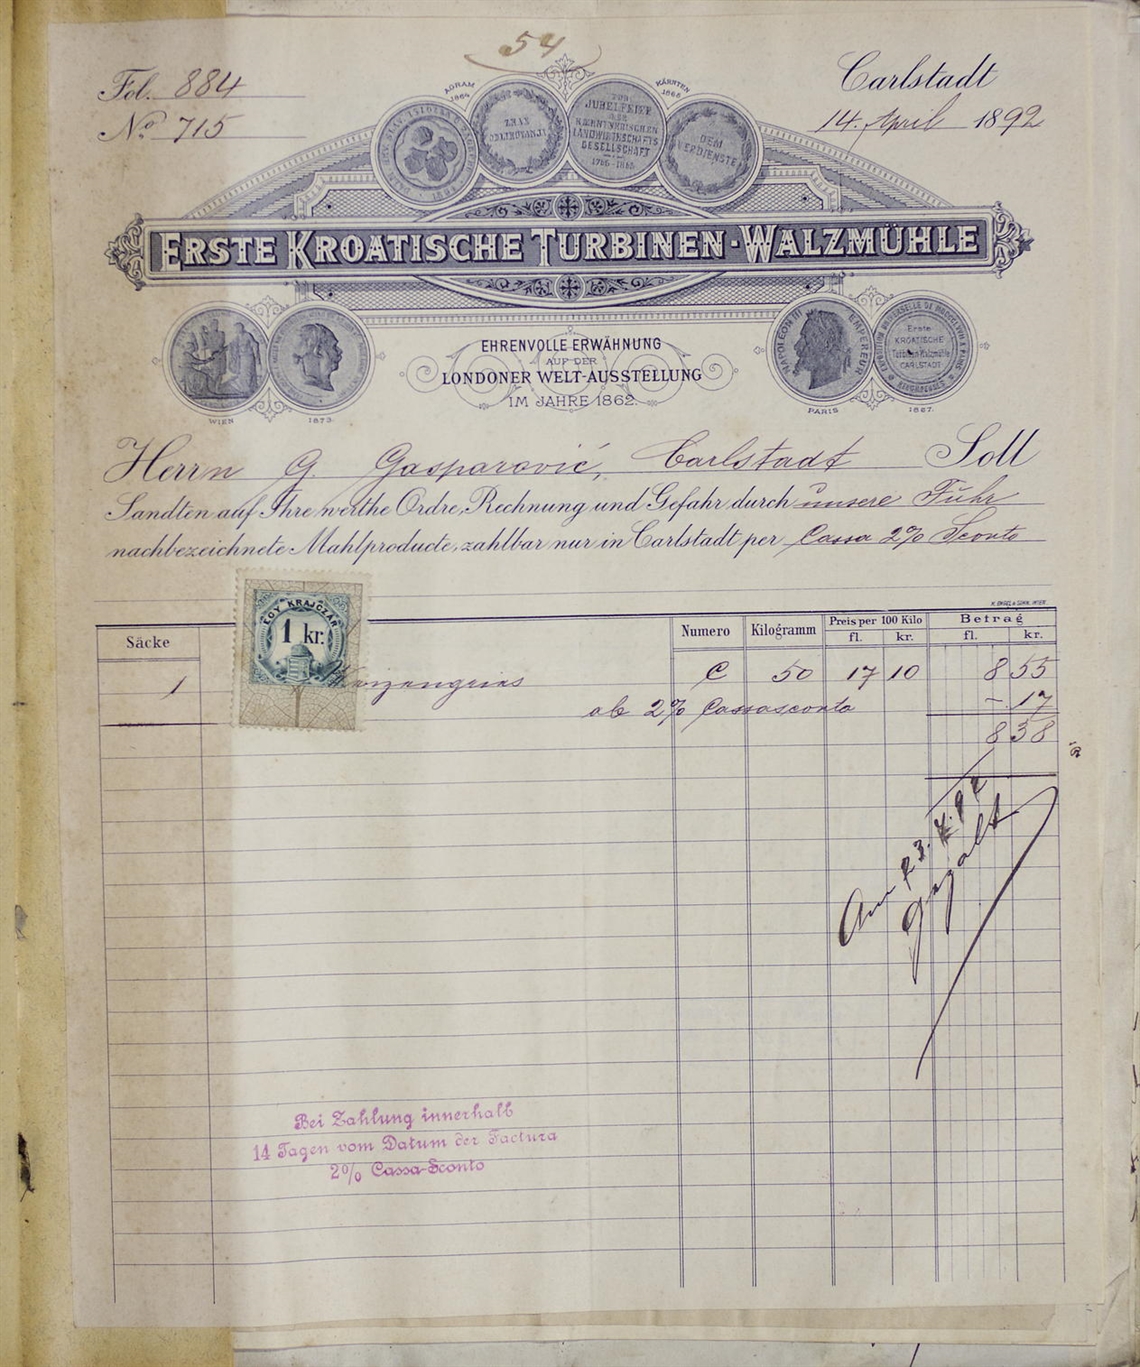 54
Fol. 884
No 715
Carlstadt
14. April 1892
AGRAM 1864
KÄRNTEN 1865
ZUR JUBELFEIER DER KAERNTNERISCHEN LANDWIRTSCHAFTS GESELLSCHAFT 1765-1865
DEM VERDIENSTE
ERSTE KROATISCHE TURBINEN-WALZMÜHLE
EHRENVOLLE ERWÄHNUNG
AUF DER
LONDONER WELT-AUSSTELLUNG
IM JAHRE 1862.
WIEN 1873.
NAPOLEON III EMPEREUR
Erste KROATISCHE Turbinen Walzmühle CARLSTADT
PARIS 1867.
Herrn G. Gasparović, Carlstadt Soll
Sandten auf Ihre werthe Ordre, Rechnung und Gefahr durch unsere Fuhr
nachbezeichnete Mahlproducte, zahlbar nur in Carlstadt per Cassa 2% Sconto
EGY KRAJCZÁR
1 kr.
Säcke Numero Kilogramm Preis per 100 Kilo Betrag
fl. kr. fl. kr.
1 Weizengries C 50 17 10 8 55
ab 2% Cassasconto - 17
8 38
Am 23. 4. 92
gezalt
Bei Zahlung innerhalb
14 Tagen vom Datum der Factura
2% Cassa-Sconto